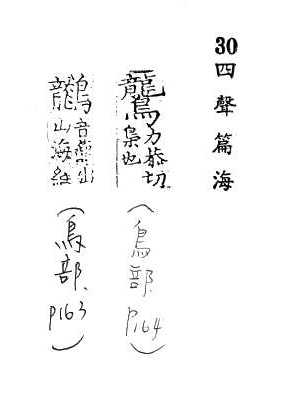 30四聲篇海
鸗力恭切
梟也
(鳥部
P164)
音
出
山海經
(鳥部、
P163)